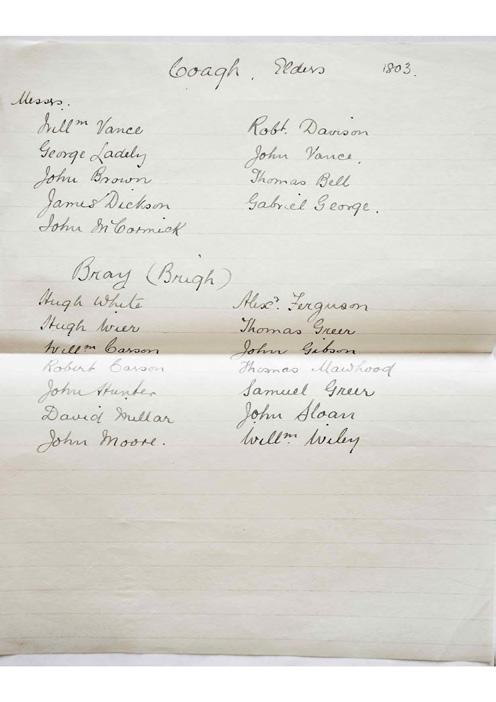 Coagh. Elders 1803.
Messrs.
Willm Vance Robt. Davison
George Ladely John Vance.
John Brown Thomas Bell
James Dickson Gabriel George.
John McCormick
Bray (Brigh)
Hugh White Alexr. Ferguson
Hugh Wier Thomas Greer
Willm Carson John Gibson
Robert Carson Thomas Mawhood
John Hunter Samuel Greer
David Millar John Sloan
John Moore. Willm Wiley